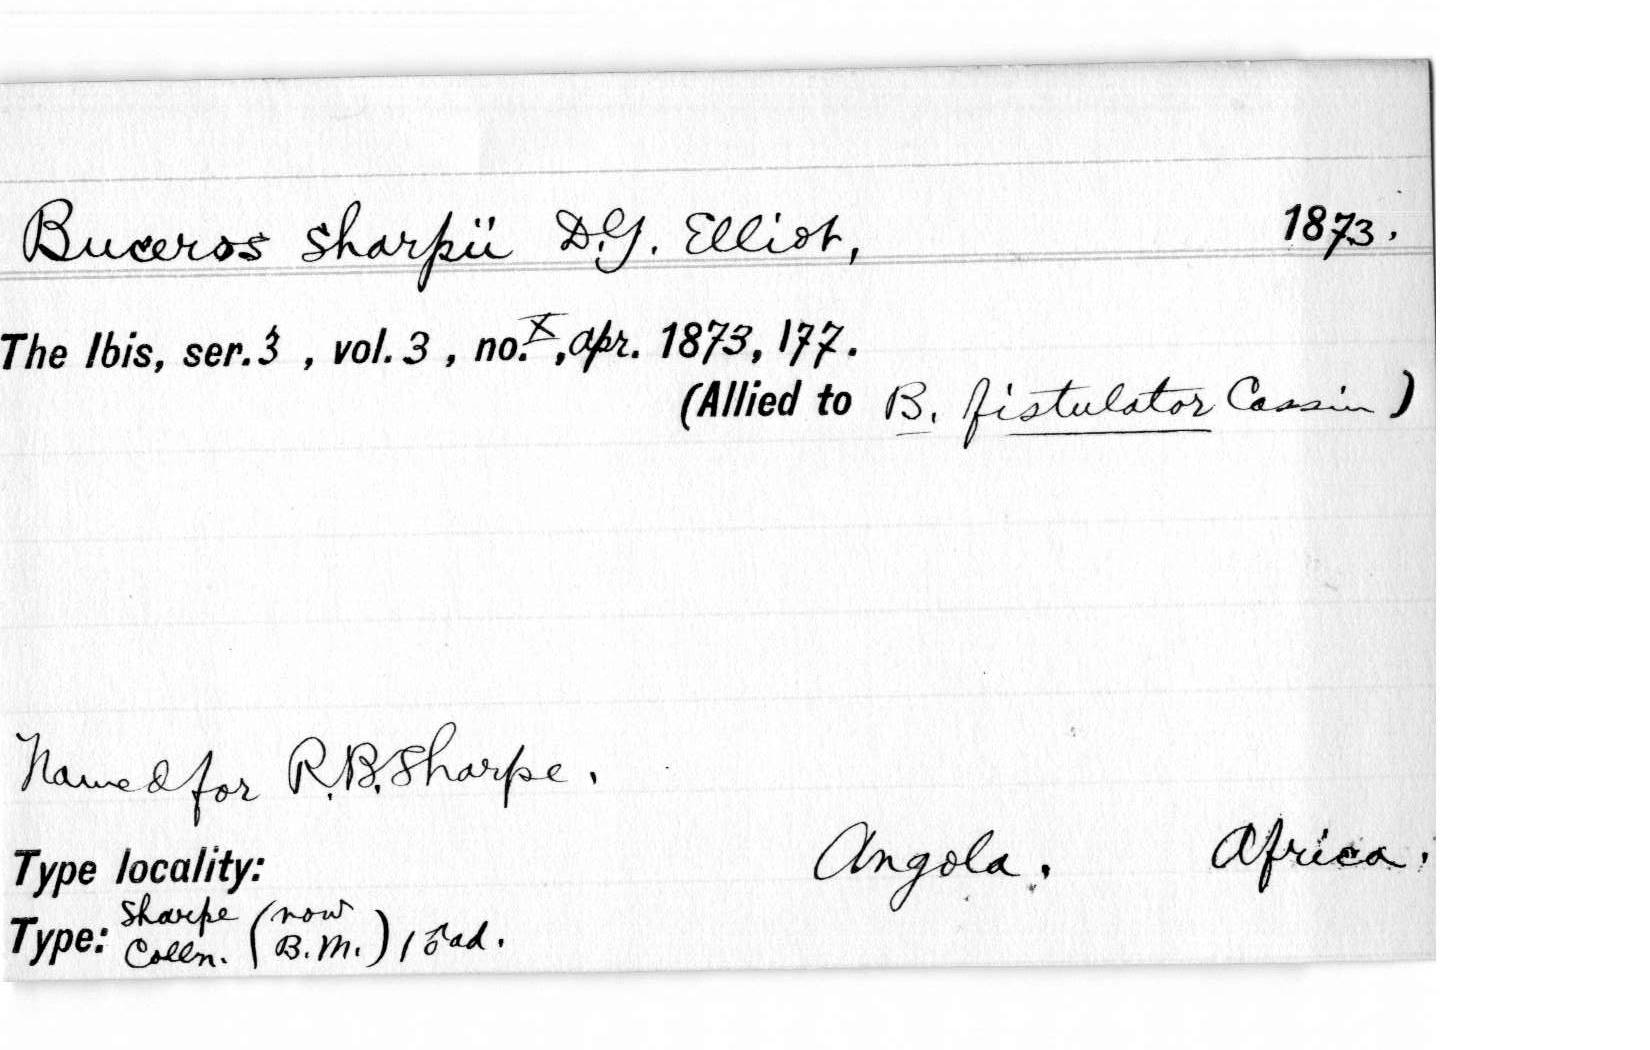 Buceros sharpii D.G. Elliot, 1873.
The Ibis, ser. 3, vol. 3, no. X, Apr. 1873, 177.
(Allied to B. fistulator Cassin)
Named for R.B. Sharpe.
Type locality: Angola. Africa.
Type: Sharpe Colln. (now B.M.) 1 ♂ ad.